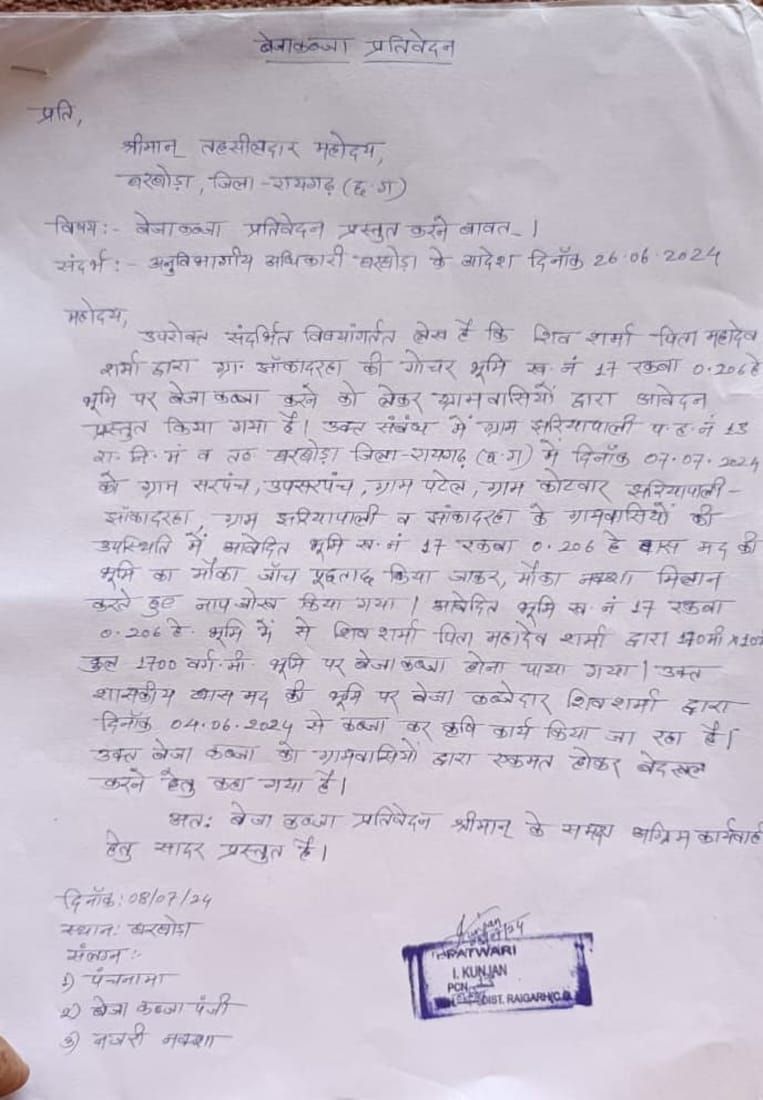 बेजाकब्जा प्रतिवेदन
प्रति,
श्रीमान् तहसीलदार महोदय,
घरघोड़ा, जिला-रायगढ़ (छ.ग)
विषय:- बेजाकब्जा प्रतिवेदन प्रस्तुत करने बावत्।
संदर्भ:- अनुविभागीय अधिकारी घरघोड़ा के आदेश दिनाँक 26.06.2024
महोदय,
उपरोक्त संदर्भित विषयांगर्तत लेख है कि शिव शर्मा पिता महादेव
शर्मा द्वारा ग्रा. झाँकादरहा की गोचर भूमि ख.नं 17 रकबा 0.206हे
भूमि पर बेजा कब्जा करने को लेकर ग्रामवासियों द्वारा आवेदन
प्रस्तुत किया गया है। उक्त संबंध में ग्राम झरियापाली प.ह.नं 13
रा.नि.मं व तह घरघोड़ा जिला-रायगढ़ (छ.ग) में दिनाँक 07.07.2024
को ग्राम सरपंच, उपसरपंच, ग्राम पटेल, ग्राम कोटवार झरियापाली-
झाँकादरहा, ग्राम झरियापाली व झांकादरहा के ग्रामवासियों की
उपस्थिति में आवेदित भूमि ख.नं 17 रकबा 0.206 हे घास मद की
भूमि का मौका जाँच पूछताछ किया जाकर, मौका नक्शा मिलान
करते हुए नाप जोख किया गया। आवेदित भूमि ख.नं 17 रकबा
0.206 हे. भूमि में से शिव शर्मा पिता महादेव शर्मा द्वारा 170मी x10मी
कुल 1700 वर्ग.मी. भूमि पर बेजा कब्जा होना पाया गया। उक्त
शासकीय घास मद की भूमि पर बेजा कब्जेदार शिव शर्मा द्वारा
दिनाँक 04.06.2024 से कब्जा कर कृषि कार्य किया जा रहा है।
उक्त बेजा कब्जा को ग्रामवासियों द्वारा एकमत होकर बेदखल
करने हेतु कहा गया है।
अत: बेजा कब्जा प्रतिवेदन श्रीमान् के समक्ष अग्रिम कार्यवाही
हेतु सादर प्रस्तुत है।
दिनाँक: 08/07/24
स्थान: घरघोड़ा
संलग्न:-
1) पंचनामा
2) बेजा कब्जा पंजी
3) नजरी नक्शा
Kunjan
08/07/24
PATWARI
I. KUNJAN
PCN 13
DIST. RAIGARH(C.G)